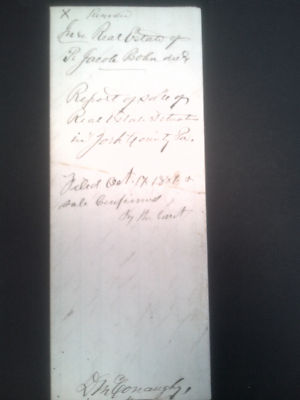 X Recorded
In re Real Estate of
P. Jacob Bohn decd
Report of sale of
Real Estate situate
in York County Pa.
Filed Oct. 17. &
sale Confirmed
By the Court
D. McConaughy,